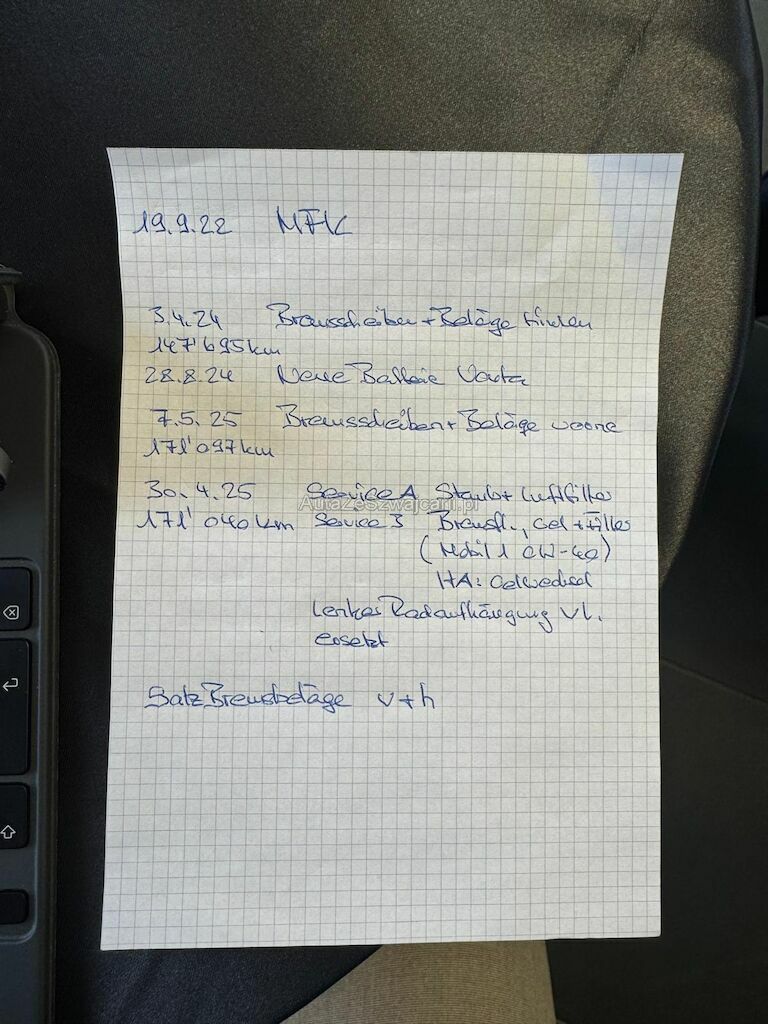 19.9.22 MFK
3.4.24 Bremsscheiben + Beläge hinten
147'695km
28.8.24 Neue Batterie Varta
7.5.25 Bremsscheiben + Beläge vorne
171'097km
30.4.25 Service A Staub + Luftfilter
AutazeSzwajcarii.pl
171'040km Service 3 Bremsfl., Oel + Filter
(Mobil 1 0W-40)
HA: Oelwechsel
Lenker Radaufhängung VL.
ersetzt
Satz Bremsbeläge v + h